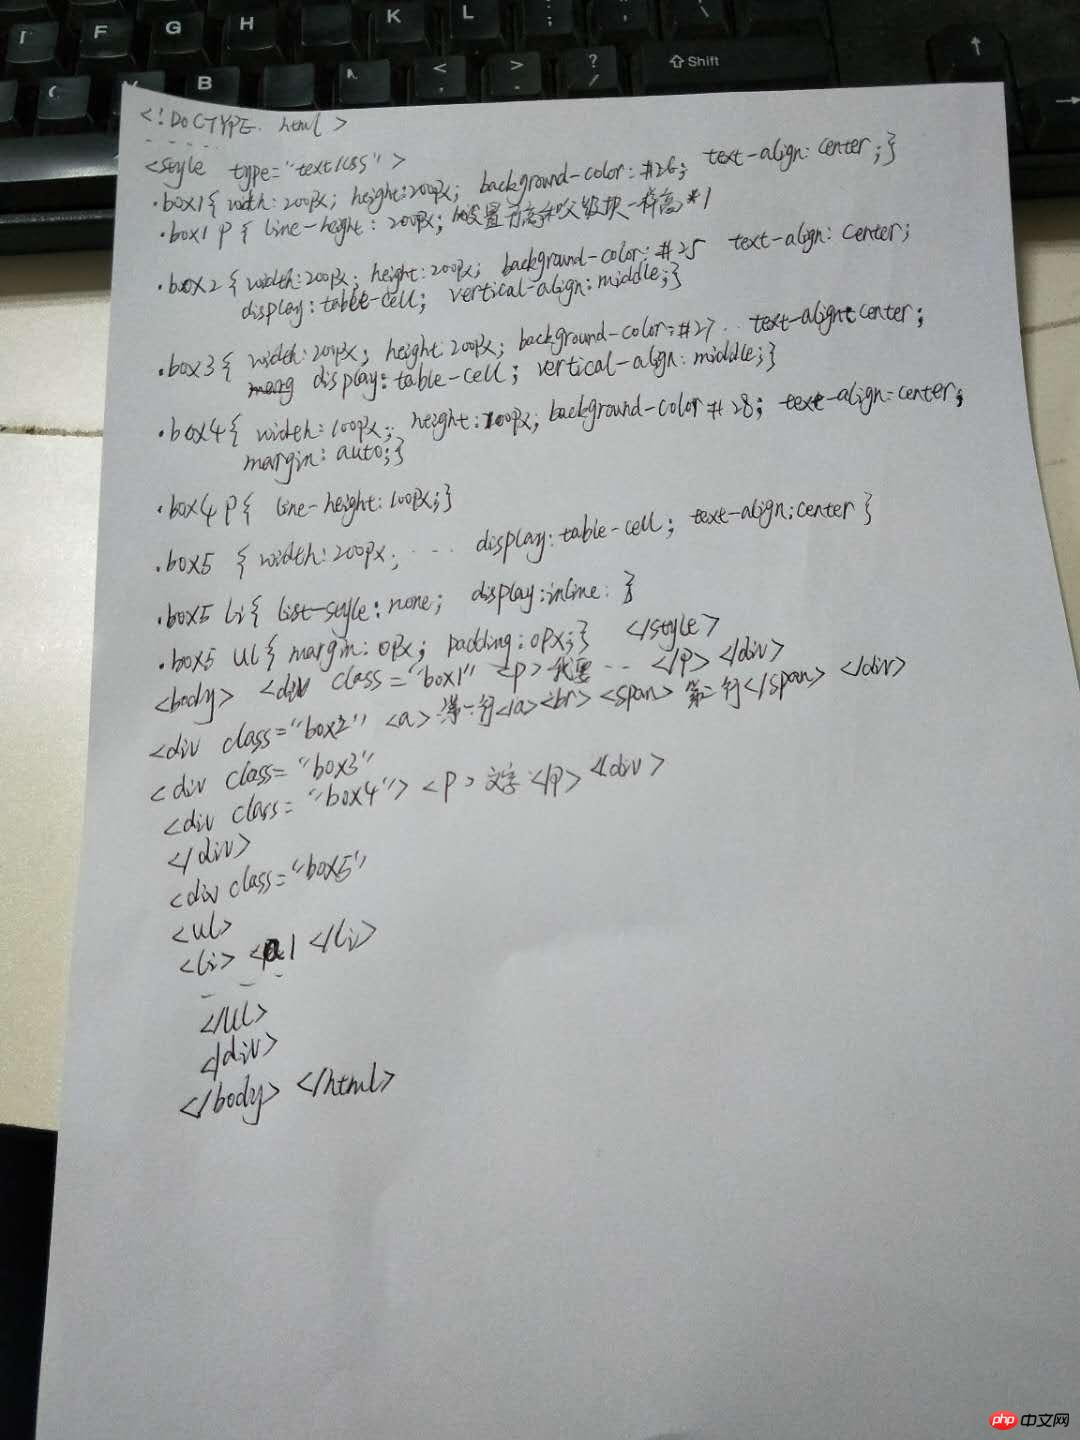 F G H K L ;
B < > ? / ⇧ Shift
<!DOCTYPE. html>
<style type="text/css">
.box1{ width: 200px; height:200px; background-color: #26; text-align: center;}
.box1 p { line-height: 200px; 设置行高和父级块一样高*1
.box2 { width:200px; height:200px; background-color: #25 text-align: center;
display: table-cell; vertical-align: middle;}
.box3 { width: 200px; height: 200px; background-color: #27.. text-align: center;
display: table-cell; vertical-align: middle;}
.box4 { width: 100px; height: 100px; background-color #28; text-align: center;
margin: auto;}
.box4 p{ line-height: 100px;}
.box5 { width: 200px; ... display: table-cell; text-align: center }
.box5 li{ list-style: none; display: inline: }
.box5 ul{ margin: 0px; padding: 0px;} </style>
<body> <div class="box1" <p>我要... </p> </div>
<div class="box2"> <a>第一行</a><br> <span> 第二行</span> </div>
<div class="box3"
<div class="box4"> <p> 文字 </p> </div>
</div>
<div class="box5"
<ul>
<li> <a1 </li>
- - -
</ul>
</div>
</body> </html>
php 中文网